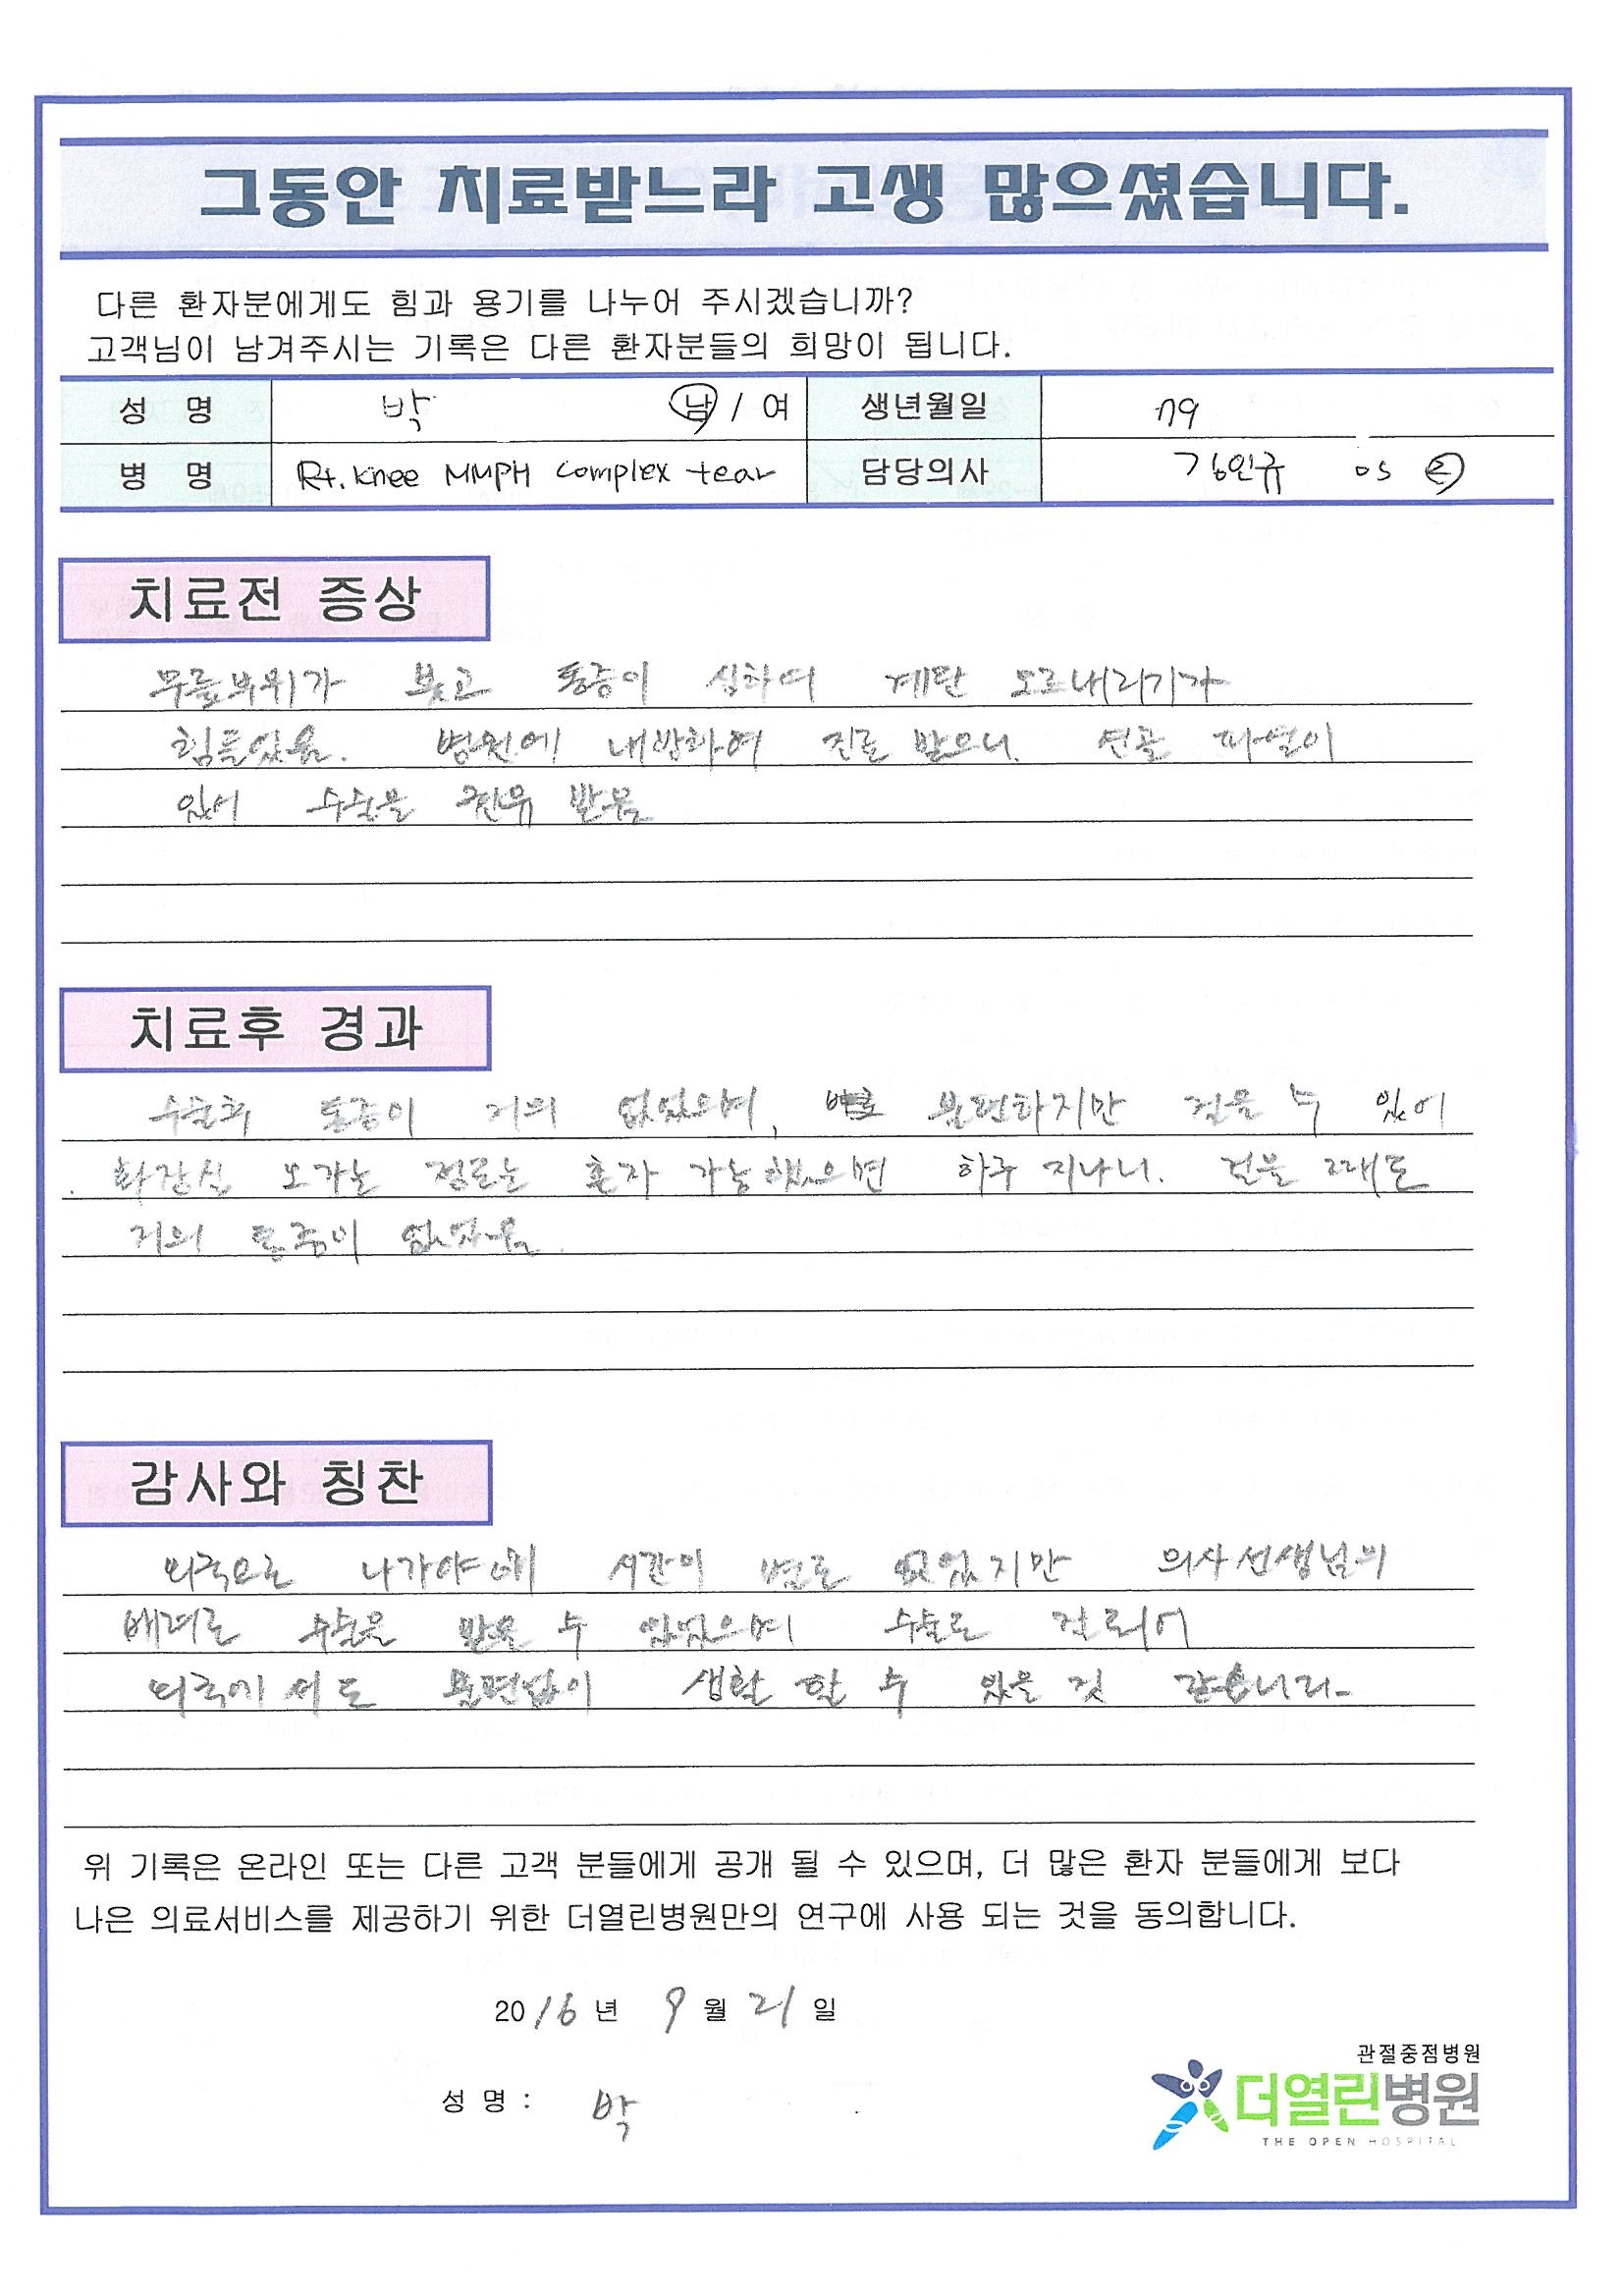 그동안 치료받느라 고생 많으셨습니다.
다른 환자분에게도 힘과 용기를 나누어 주시겠습니까?
고객님이 남겨주시는 기록은 다른 환자분들의 희망이 됩니다.
성 명 박 남 / 여 생년월일 79
병 명 Rt. knee MMPH complex tear 담당의사 김인규 OS
치료전 증상
무릎부위가 붓고 통증이 심하여 계단 오르내리기가
힘들었음. 병원에 내방하여 진료 받으니. 연골 파열이
있어 수술을 권유 받음
치료후 경과
수술후 통증이 거의 없었으며, 불편하지만 걸을 수 있어
화장실 오가는 정도는 혼자 가능했으며 하루 지나니. 걸을 때도
거의 통증이 없었음.
감사와 칭찬
외국으로 나가야해 시간이 별로 없었지만 의사선생님의
배려로 수술을 받을 수 있었으며 수술로
외국에서도 불편없이 생활 할 수 있을 것 같습니다.
위 기록은 온라인 또는 다른 고객 분들에게 공개 될 수 있으며, 더 많은 환자 분들에게 보다
나은 의료서비스를 제공하기 위한 더열린병원만의 연구에 사용 되는 것을 동의합니다.
2016년 9월 21일
성 명 : 박
관절중점병원
더열린병원
THE OPEN HOSPITAL